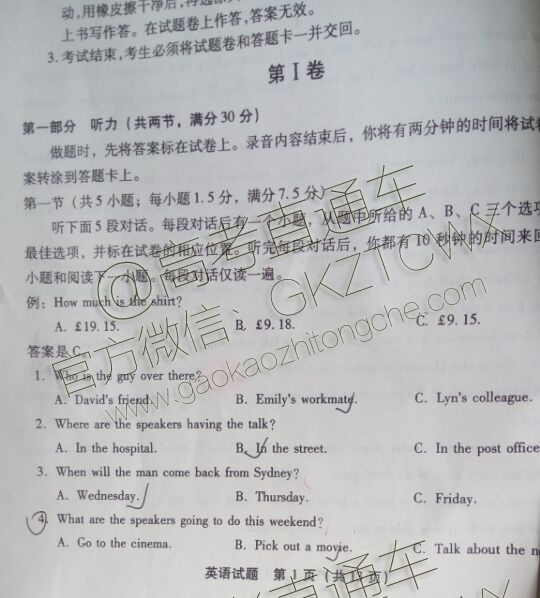 动,用橡皮擦干净后,再选涂其
上书写作答。在试题卷上作答,答案无效。
3. 考试结束,考生必须将试题卷和答题卡一并交回。
第 I 卷
第一部分 听力（共两节，满分 30 分）
做题时，先将答案标在试卷上。录音内容结束后，你将有两分钟的时间将试卷
案转涂到答题卡上。
第一节（共 5 小题；每小题 1.5 分，满分 7.5 分）
听下面 5 段对话。每段对话后有一个小题，从题中所给的 A、B、C 三个选项
最佳选项，并标在试卷的相应位置。听完每段对话后，你都有 10 秒钟的时间来回
小题和阅读下一小题。每段对话仅读一遍。
例：How much is the shirt?
A. £19. 15. B. £9. 18. C. £9. 15.
答案是 C。
1. Who is the guy over there?
A. David's friend. B. Emily's workmate. C. Lyn's colleague.
2. Where are the speakers having the talk?
A. In the hospital. B. In the street. C. In the post office
3. When will the man come back from Sydney?
A. Wednesday. B. Thursday. C. Friday.
4. What are the speakers going to do this weekend?
A. Go to the cinema. B. Pick out a movie. C. Talk about the
英语试题 第 1 页（共 12 页）
@高考直通车
官方微信：GKZTCWX
www.gaokaozhitongche.com